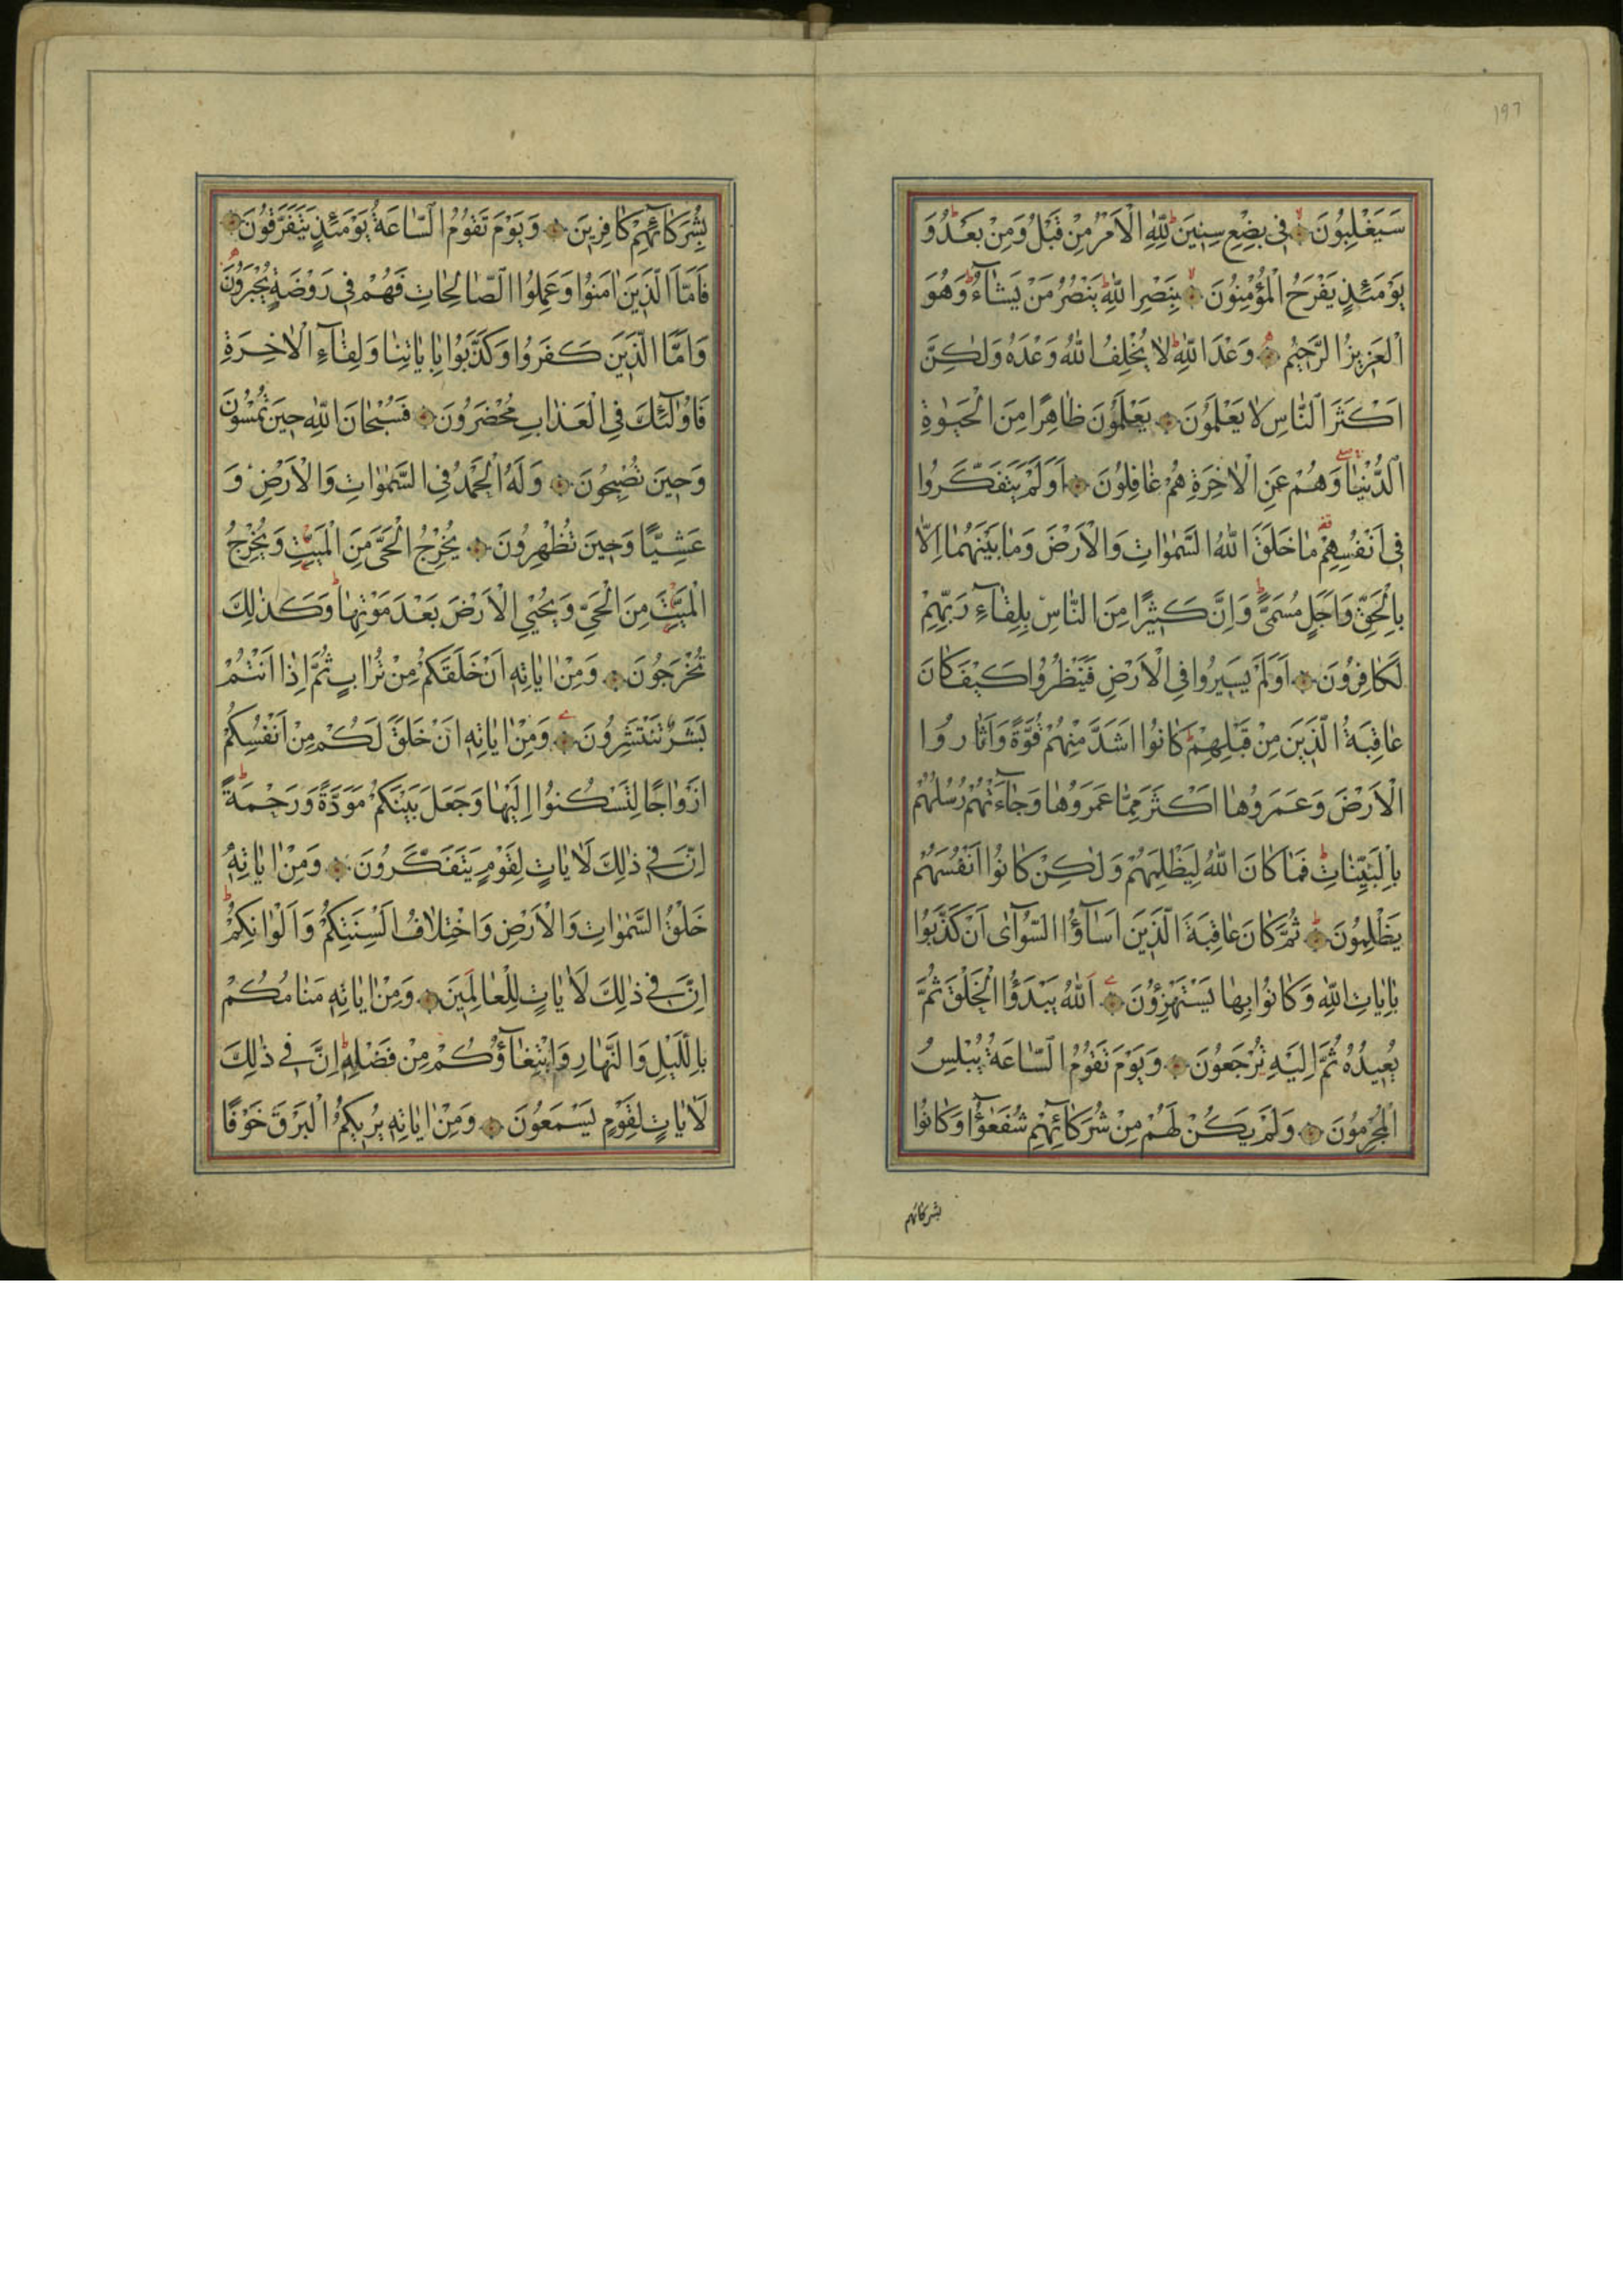 ١٩٦
سَيَغْلِبُونَ فِى بِضْعِ سِنِينَ لِلّٰهِ الْاَمْرُ مِنْ قَبْلُ وَمِنْ بَعْدُ وَ
يَوْمَئِذٍ يَفْرَحُ الْمُؤْمِنُونَ بِنَصْرِ اللّٰهِ يَنْصُرُ مَنْ يَشَآءُ وَهُوَ
الْعَزِيزُ الرَّحِيمُ وَعْدَ اللّٰهِ لَا يُخْلِفُ اللّٰهُ وَعْدَهُ وَلٰكِنَّ
اَكْثَرَ النَّاسِ لَا يَعْلَمُونَ يَعْلَمُونَ ظَاهِرًا مِنَ الْحَيٰوةِ
الدُّنْيَا وَهُمْ عَنِ الْاٰخِرَةِ هُمْ غَافِلُونَ اَوَلَمْ يَتَفَكَّرُوا
فِى اَنْفُسِهِمْ مَا خَلَقَ اللّٰهُ السَّمٰوَاتِ وَالْاَرْضَ وَمَا بَيْنَهُمَا اِلَّا
بِالْحَقِّ وَاَجَلٍ مُسَمًّى وَاِنَّ كَثِيرًا مِنَ النَّاسِ بِلِقَآءِ رَبِّهِمْ
لَكَافِرُونَ اَوَلَمْ يَسِيرُوا فِى الْاَرْضِ فَيَنْظُرُوا كَيْفَ كَانَ
عَاقِبَةُ الَّذِينَ مِنْ قَبْلِهِمْ كَانُوا اَشَدَّ مِنْهُمْ قُوَّةً وَاَثَارُوا
الْاَرْضَ وَعَمَرُوهَا اَكْثَرَ مِمَّا عَمَرُوهَا وَجَآءَتْهُمْ رُسُلُهُمْ
بِالْبَيِّنَاتِ فَمَا كَانَ اللّٰهُ لِيَظْلِمَهُمْ وَلٰكِنْ كَانُوا اَنْفُسَهُمْ
يَظْلِمُونَ ثُمَّ كَانَ عَاقِبَةَ الَّذِينَ اَسَآؤُا السُّوآٰى اَنْ كَذَّبُوا
بِاٰيَاتِ اللّٰهِ وَكَانُوا بِهَا يَسْتَهْزِؤُنَ اَللّٰهُ يَبْدَؤُا الْخَلْقَ ثُمَّ
يُعِيدُهُ ثُمَّ اِلَيْهِ تُرْجَعُونَ وَيَوْمَ تَقُومُ السَّاعَةُ يُبْلِسُ
الْمُجْرِمُونَ وَلَمْ يَكُنْ لَهُمْ مِنْ شُرَكَآئِهِمْ شُفَعٰٓؤُا وَكَانُوا
بشركائهم
بِشُرَكَآئِهِمْ كَافِرِينَ وَيَوْمَ تَقُومُ السَّاعَةُ يَوْمَئِذٍ يَتَفَرَّقُونَ
فَاَمَّا الَّذِينَ اٰمَنُوا وَعَمِلُوا الصَّالِحَاتِ فَهُمْ فِى رَوْضَةٍ يُحْبَرُونَ
وَاَمَّا الَّذِينَ كَفَرُوا وَكَذَّبُوا بِاٰيَاتِنَا وَلِقَآءِ الْاٰخِرَةِ
فَاُولٰٓئِكَ فِى الْعَذَابِ مُحْضَرُونَ فَسُبْحَانَ اللّٰهِ حِينَ تُمْسُونَ
وَحِينَ تُصْبِحُونَ وَلَهُ الْحَمْدُ فِى السَّمٰوَاتِ وَالْاَرْضِ وَ
عَشِيًّا وَحِينَ تُظْهِرُونَ يُخْرِجُ الْحَىَّ مِنَ الْمَيِّتِ وَيُخْرِجُ
الْمَيِّتَ مِنَ الْحَىِّ وَيُحْيِى الْاَرْضَ بَعْدَ مَوْتِهَا وَكَذٰلِكَ
تُخْرَجُونَ وَمِنْ اٰيَاتِهِ اَنْ خَلَقَكُمْ مِنْ تُرَابٍ ثُمَّ اِذَا اَنْتُمْ
بَشَرٌ تَنْتَشِرُونَ وَمِنْ اٰيَاتِهِ اَنْ خَلَقَ لَكُمْ مِنْ اَنْفُسِكُمْ
اَزْوَاجًا لِتَسْكُنُوا اِلَيْهَا وَجَعَلَ بَيْنَكُمْ مَوَدَّةً وَرَحْمَةً
اِنَّ فِى ذٰلِكَ لَاٰيَاتٍ لِقَوْمٍ يَتَفَكَّرُونَ وَمِنْ اٰيَاتِهِ
خَلْقُ السَّمٰوَاتِ وَالْاَرْضِ وَاخْتِلَافُ اَلْسِنَتِكُمْ وَاَلْوَانِكُمْ
اِنَّ فِى ذٰلِكَ لَاٰيَاتٍ لِلْعَالَمِينَ وَمِنْ اٰيَاتِهِ مَنَامُكُمْ
بِالَّيْلِ وَالنَّهَارِ وَابْتِغَآؤُكُمْ مِنْ فَضْلِهِ اِنَّ فِى ذٰلِكَ
لَاٰيَاتٍ لِقَوْمٍ يَسْمَعُونَ وَمِنْ اٰيَاتِهِ يُرِيكُمُ الْبَرْقَ خَوْفًا